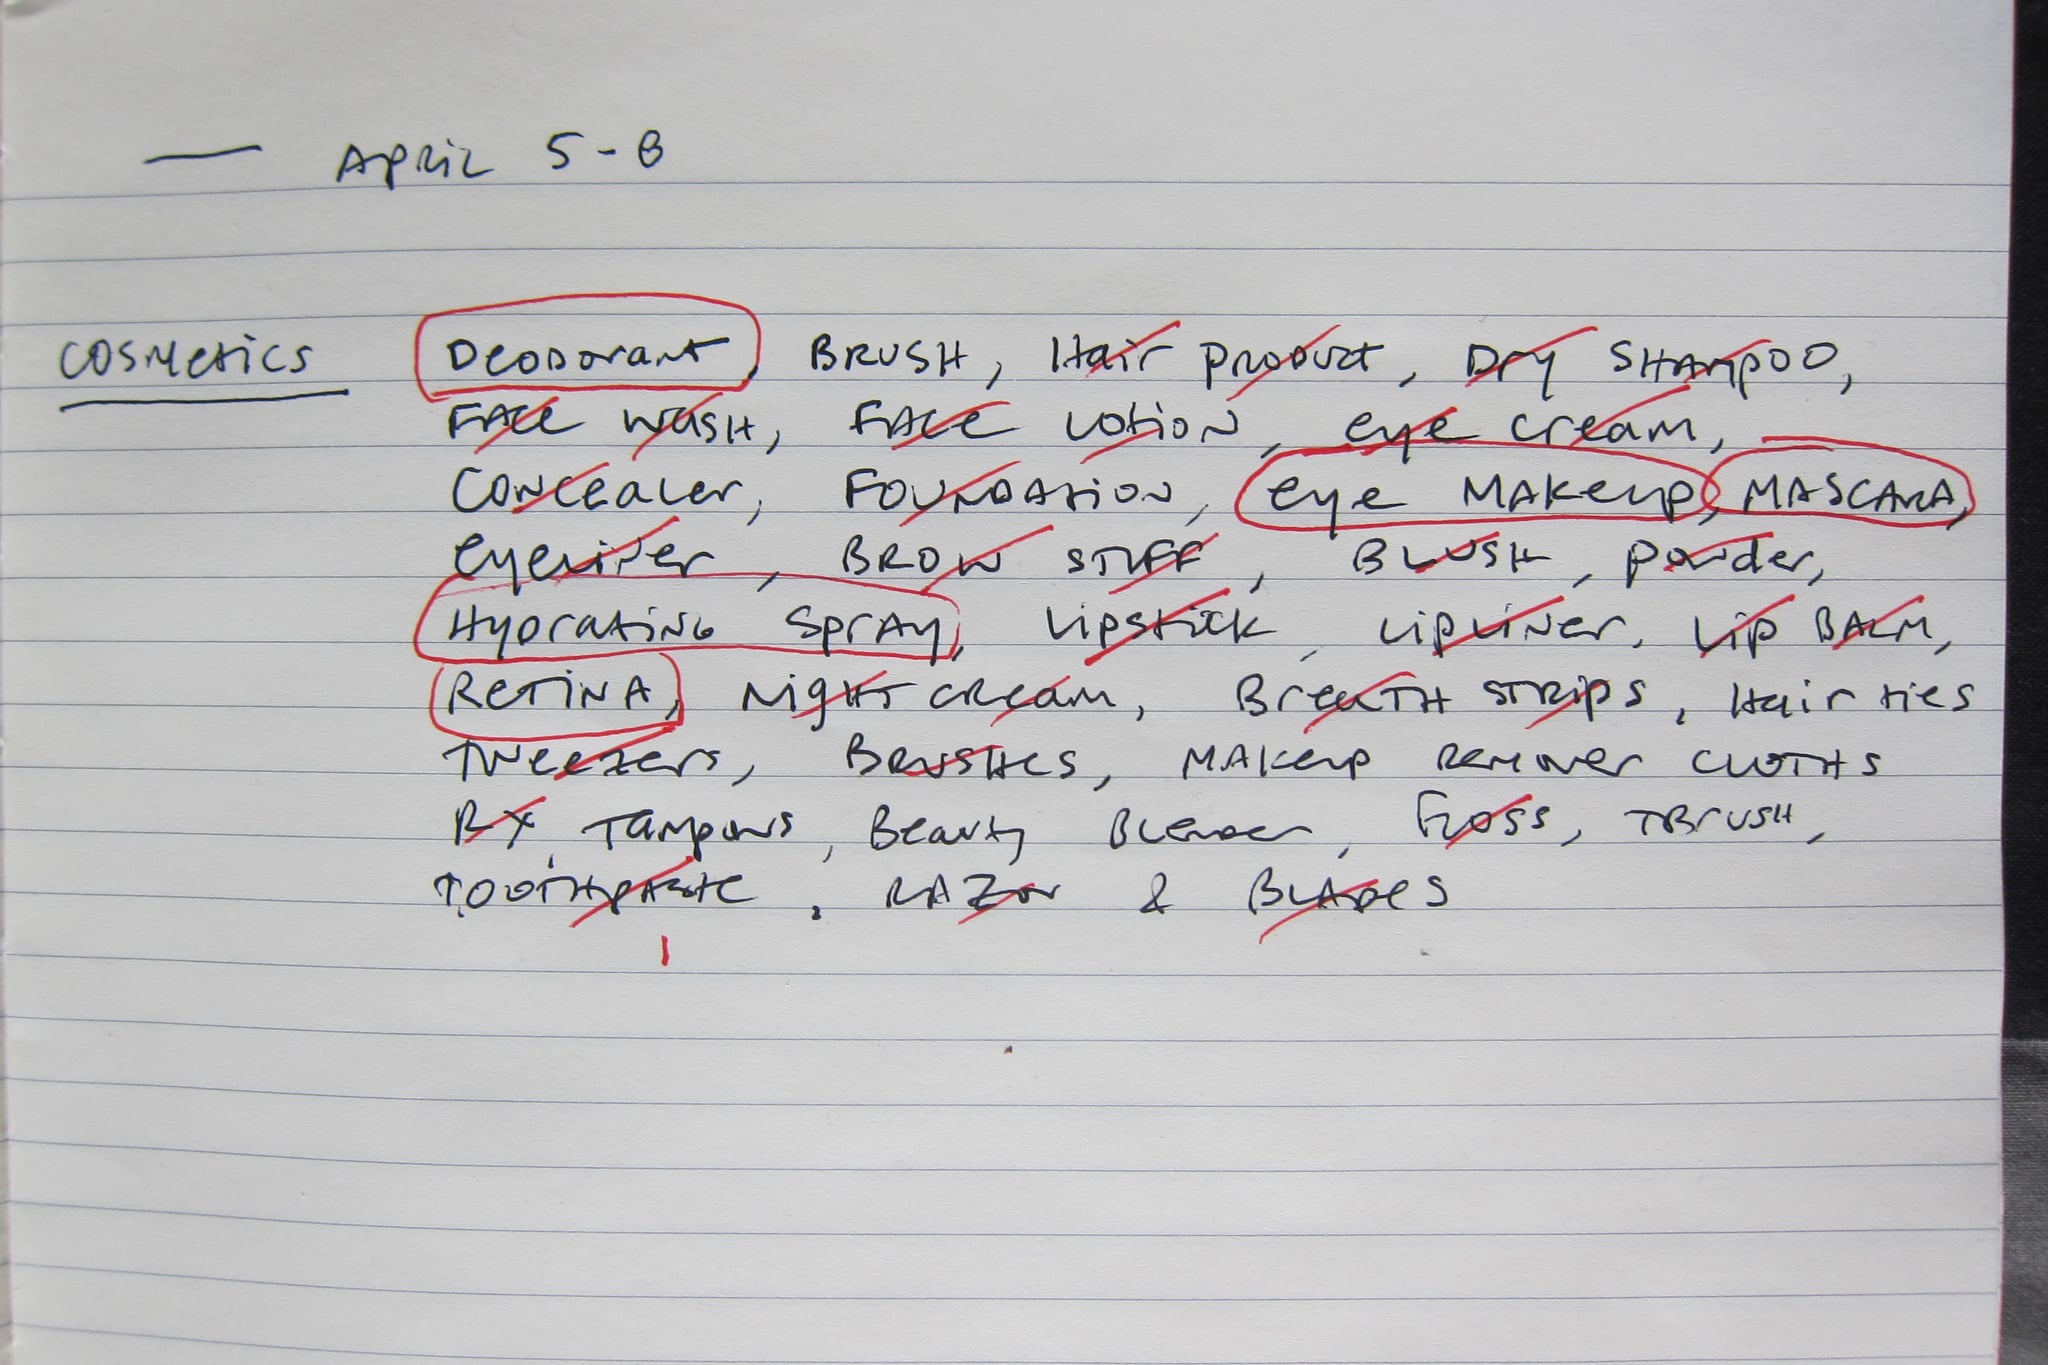 — April 5-8
COSMETICS Deodorant, BRUSH, Hair product, Dry SHAMPOO,
FACE WASH, FACE Lotion, eye cream,
CONCEALER, FOUNDATION, eye Makeup, MASCARA,
eyeliner, BROW STUFF, BLUSH, powder,
Hydrating Spray, Lipstick, Lipliner, Lip BALM,
RETINA, Night cream, Breath STRIPS, Hair ties
Tweezers, Brushes, Makeup Remover CLOTHS
RX, Tampons, Beauty Blender, Floss, TBRUSH,
TOOTHpaste, RAZOR & BLADES